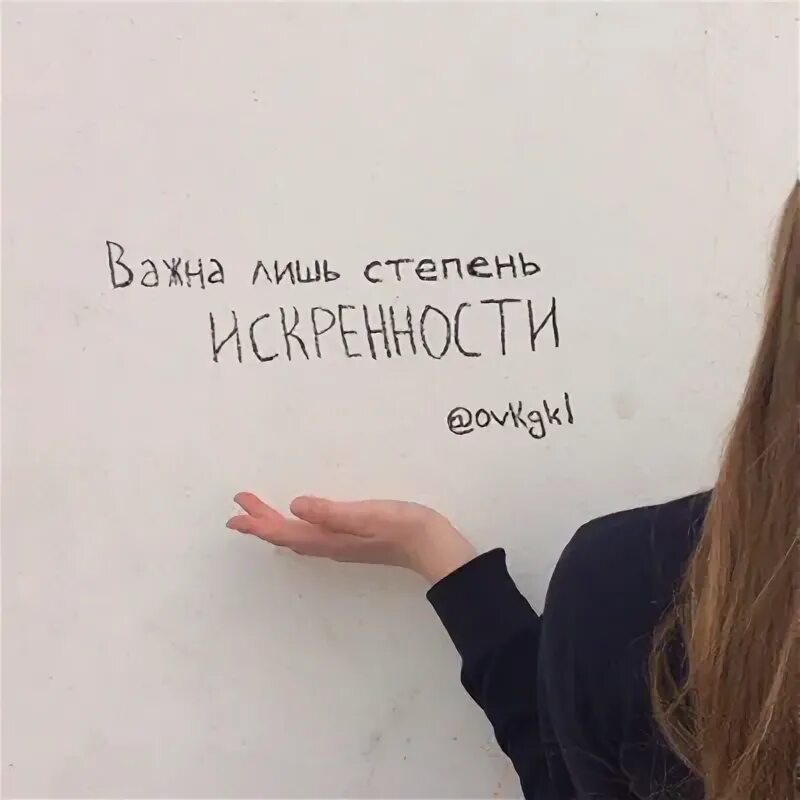 Важна лишь степень
ИСКРЕННОСТИ
@ovkgkl